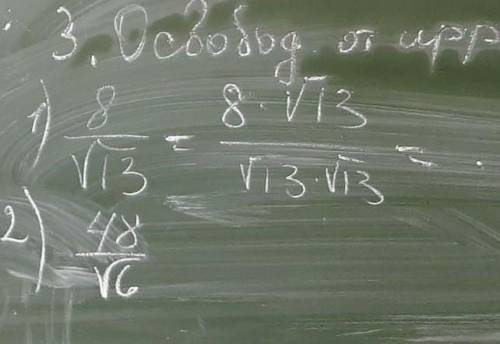 3. Освобод от ирр
1) 8/√13 = 8·√13/√13·√13 =
2) 48/√6